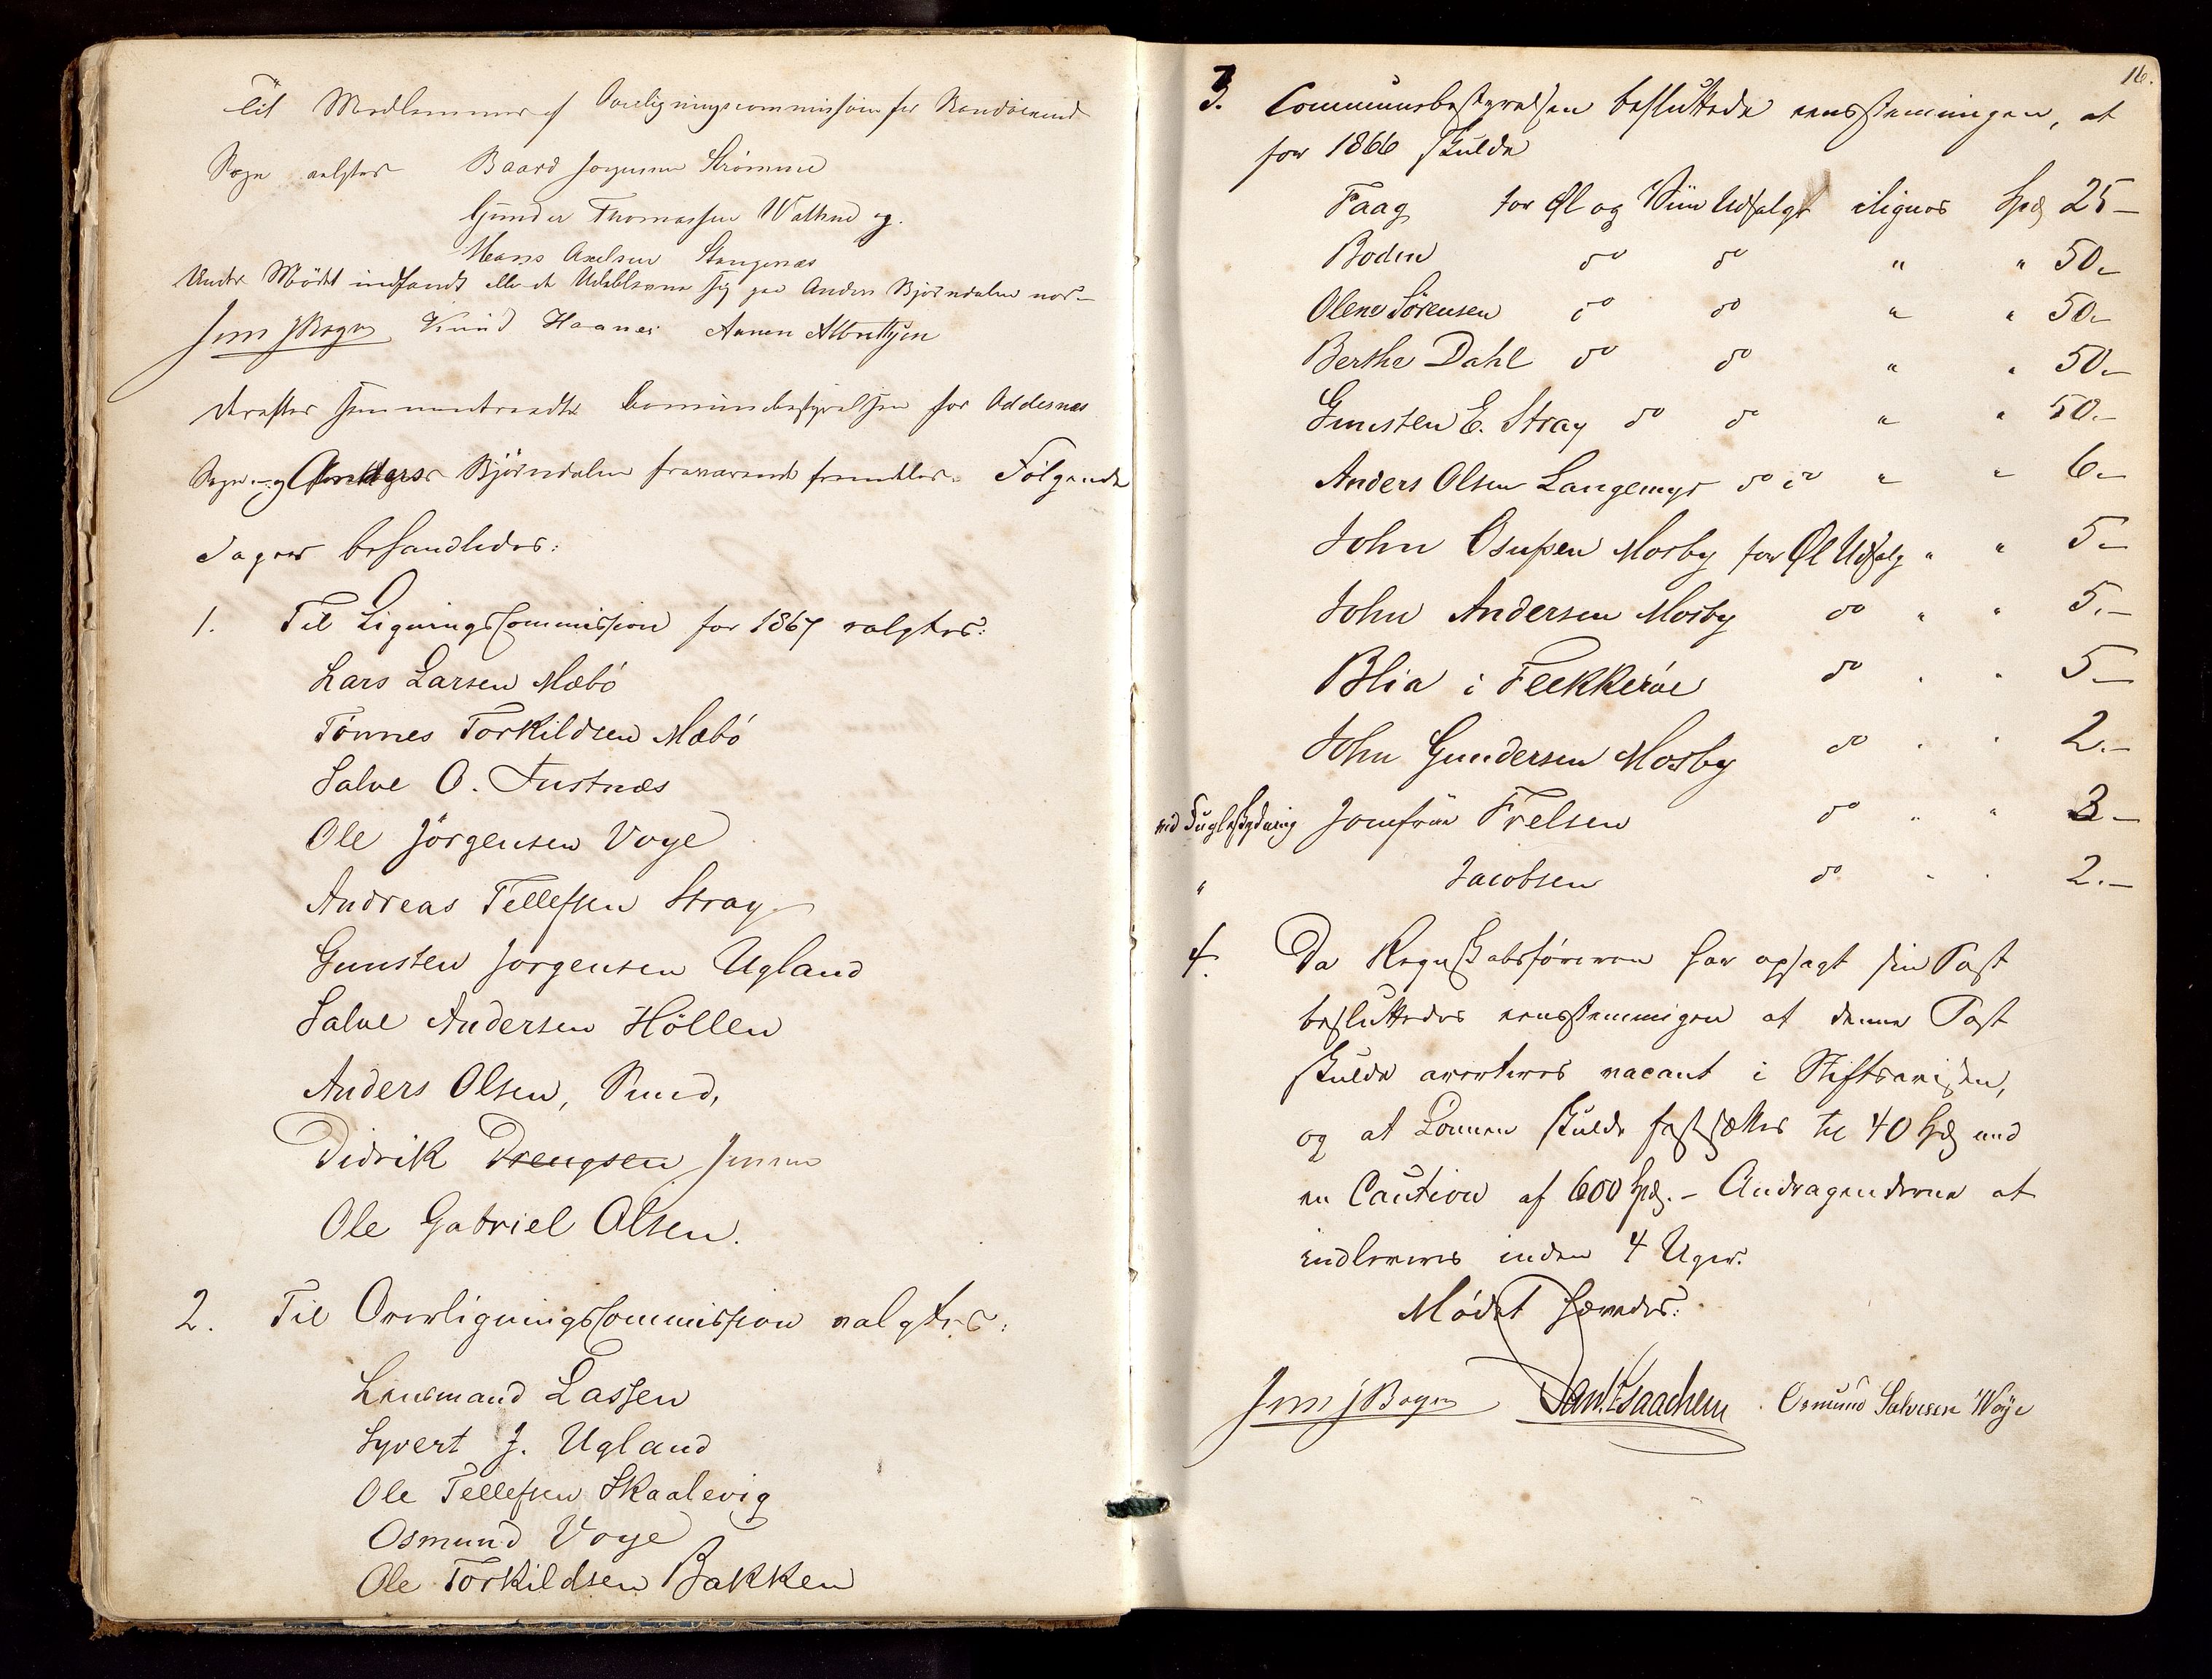 Til Medlemmer af Overligningscommissionen for Randøsund
Sogn valgtes Baard Jørgensen Strømme
Gunder Thomassen Walhud og
Hans Axelsen Stangenæs
Under Mødet indfandt alle de Udeblevne sig paa Anders Bjørndalen nær.
Jens JBogen Knud Haanes Aanen Albretsen
Derefter sammentraadte Communebestyrelsen for Oddernæs
Sogn og Anders Bjørndalen fraværende fremdeles. Følgende
Sager behandledes:
1. Til LigningsCommission for 1867 valgtes:
Lars Larsen Mæbö
Tönnes Torkildsen Mæbö
Salve O. Justnæs
Ole Jörgensen Voye
Andreas Tellefsen Stray
Gunsten Jörgensen Ugland
Salve Andersen Höllen
Anders Olsen, Sund,
Didrik Drengsen Jensen
Ole Gabriel Olsen.
2. Til OverligningsCommission valgtes:
Lensmand Lassen
Syvert J. Ugland
Ole Tellefsen Skaalevig
Osmund Voye
Ole Torkildsen Bakken
16.
3. Communebestyrelsen besluttede eensstemmingen, at
for 1866 skulde
Faag for Øl og Viin Udsalgt ilignes Spd 25 –
Boden do do " " 50.–
Olene Sörensen do do " " 50.–
Berthe Dahl do do " " 50.–
Gunsten E. Stray do do " " 50.–
Anders Olsen Langemyr do do " " 6.–
John Osufsen Mosby for Øl Udsalg " " 5.–
John Andersen Mosby do " " 5.–
Blia i Flekkeröe do " " 5.–
John Gundersen Mosby do " " 2.–
ved Fugleskydning Jomfrue Frelsen do " " 3.–
" Jacobsen do " " 2.–
4. Da Regnskabsføreren har opsagt sin Post
besluttedes eensstemmigen at denne Post
skulde averteres vacant i Stiftsavisen,
og at Lønnen skulde fastsættes til 40 Spd med
en Caution af 600 Spd. – Andragenderne at
indleveres inden 4 Uger.
Mødet hævedes:
Jens JBogen Dan. Isaachsen Osmund Salvesen Woye